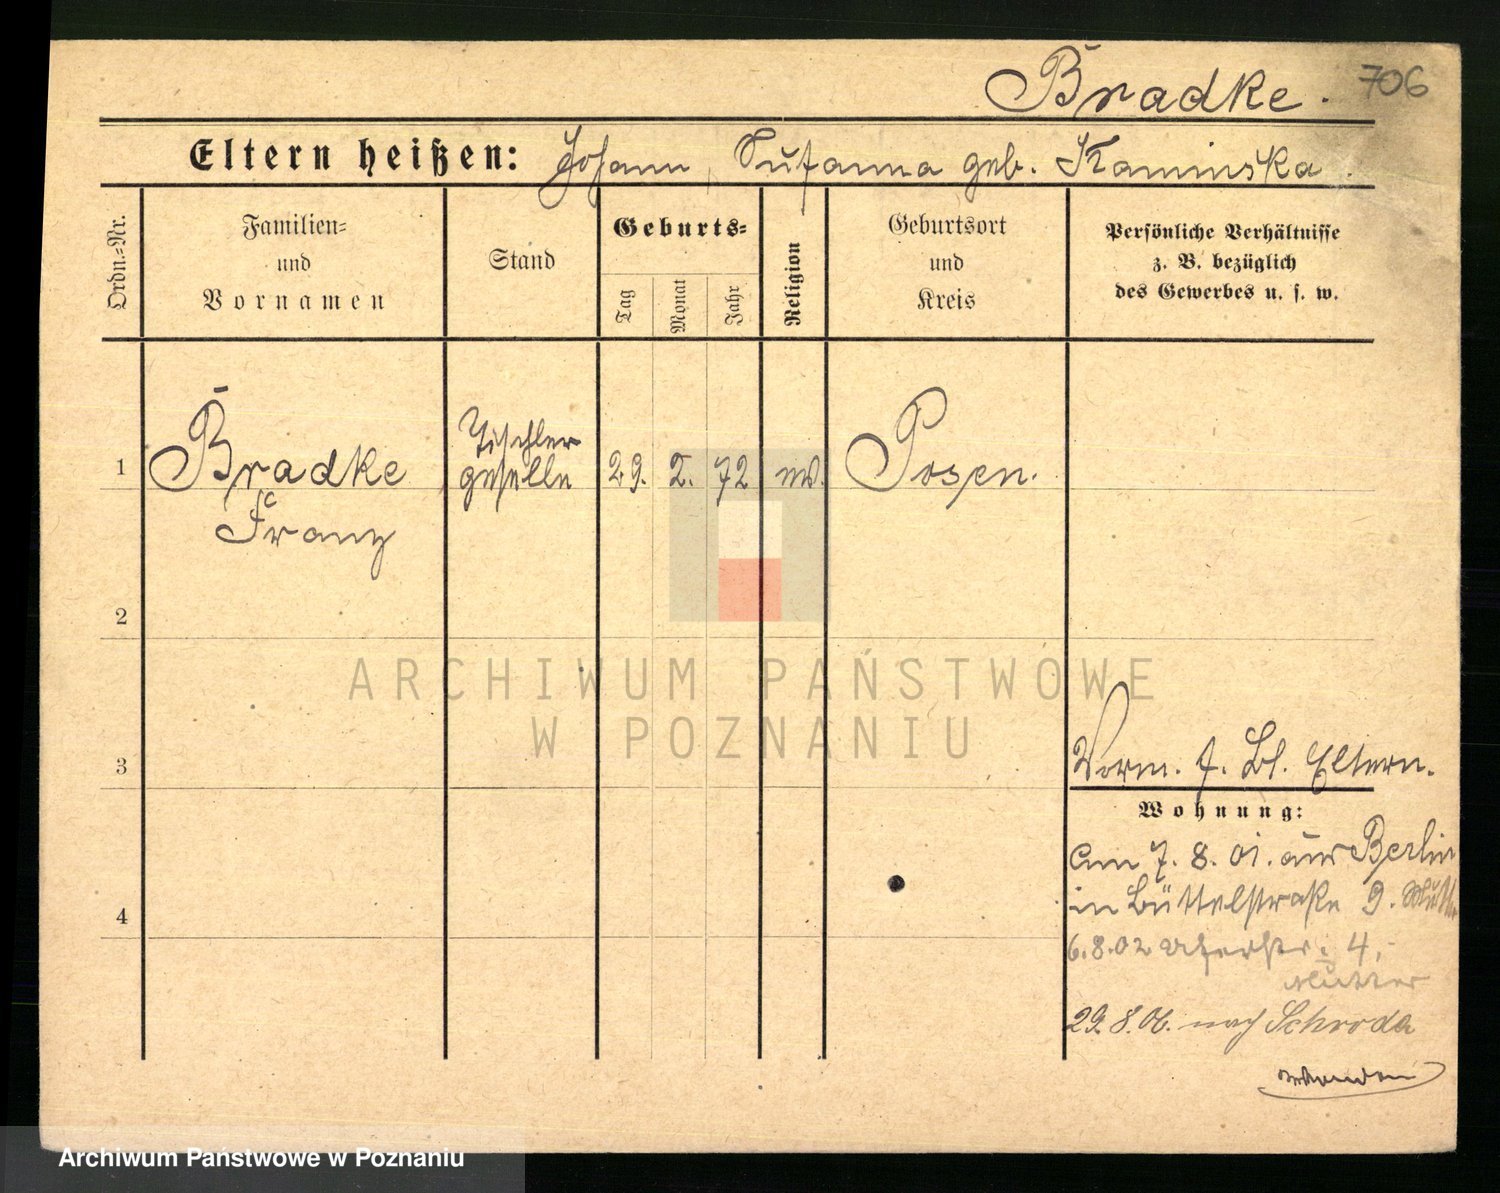 Bradke. 706
Eltern heißen: Johann, Susanna geb. Kaminska.
Ordn.-Nr.
Familien-
und
Vornamen
Stand
Geburts-
Tag
Monat
Jahr
Religion
Geburtsort
und
Kreis
Persönliche Verhältnisse
z. B. bezüglich
des Gewerbes u. s. w.
1
Bradke
Franz
Tischler
geselle
29. 2. 72
Posen.
2
ARCHIWUM PAŃSTWOWE
W POZNANIU
3
Vorm. f. Bl. Eltern.
Wohnung:
am 7. 8. 01. aus Berlin
in Büttelstraße 9. Mutter
4
6.8.02 4.
Mutter
29.8.06. nach Schroda
Archiwum Państwowe w Poznaniu